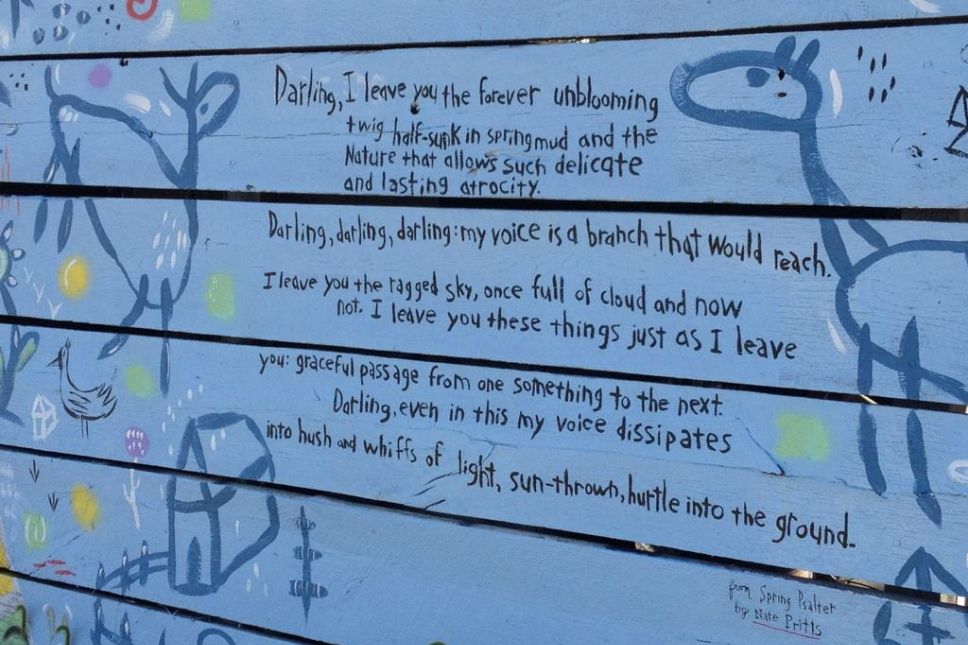 Darling, I leave you the forever unblooming
twig half-sunk in spring mud and the
Nature that allows such delicate
and lasting atrocity.
Darling, darling, darling: my voice is a branch that would reach.
I leave you the ragged sky, once full of cloud and now
not. I leave you these things just as I leave
you: graceful passage from one something to the next.
Darling, even in this my voice dissipates
into hush and whiffs of light, sun-thrown, hurtle into the ground.
from Spring Psalter
by Nate Pritts